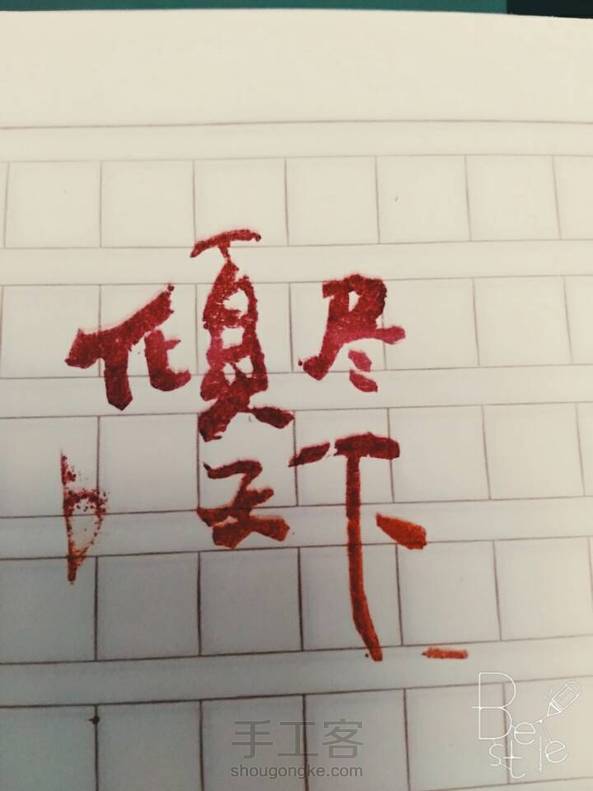 傾尽
天下
手工客
shougongke.com
Be